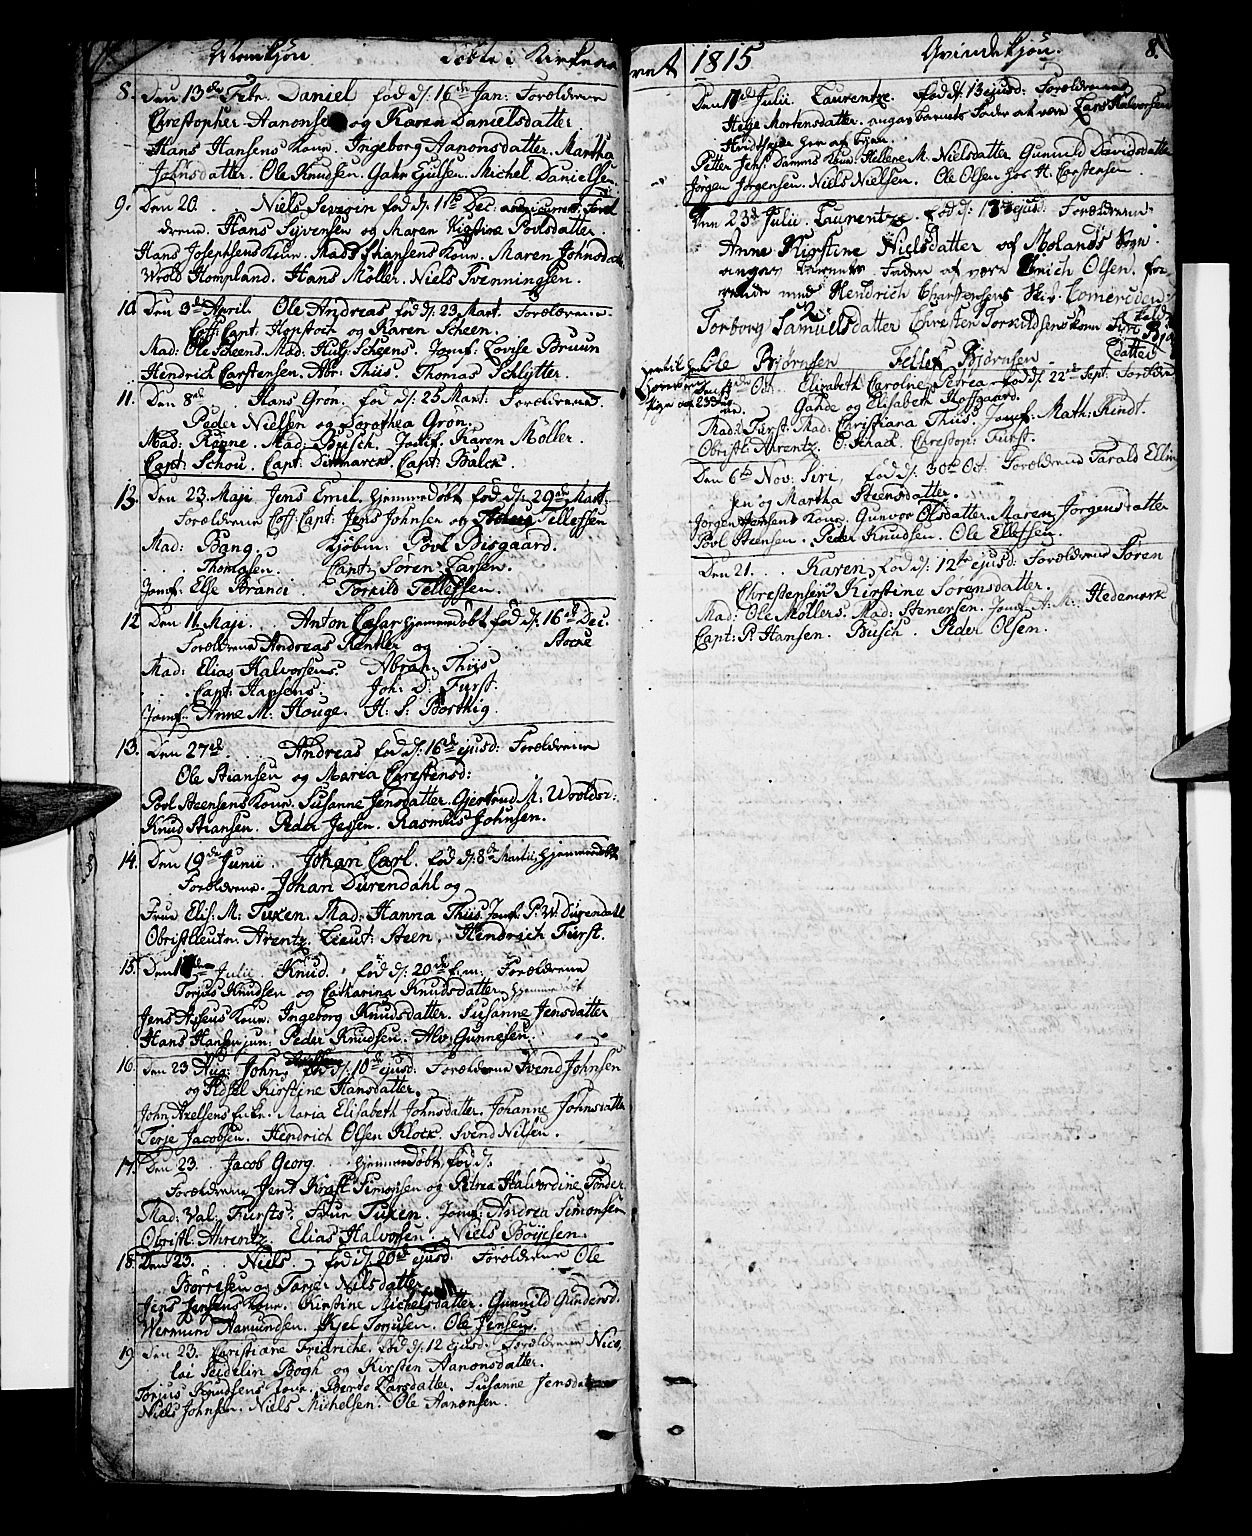 Mandkjøn Døbte i Kirken
8. Den 13de Febr. Daniel fød d: 16de Jan: Forældrene
Christopher Aanonsen og Karen Danielsdatter
Hans Hansens Kone. Ingeborg Aanonsdatter. Martha
Johnsdatter. Ole Knudsen. Gahr Ejulsen. Michel Danielsen
9. Den 20. . Niels Severin fød d: 1ste Dec. Foræl
drene. Hans Syvensen og Maren Kirstine Povlsdatter.
Hans Josephsens Kone. Mads Stiansens Kone. Maren Johnsdatt
Wrold Hompland. Hans Møller. Niels Svenningsen.
10. Den 3de April. Ole Andreas fød d: 23 Mart. Forældrene
Coff: Capt: Hopstock og Karen Scheen.
Mad: Ole Scheens. Mad: Hulj: Scheens. Jomf. Lovise Bruun
Hendrich Carstensen. Abr: Thiis. Thomas Schlytter.
11. Den 8de Hans Grøn. fød d: 25 Mart. Forældrene.
Peder Nielsen og Dorothea Grøn.
Mad: Rønne. Mad: Busch. Jomf. Karen Møller.
Capt: Schou. Capt: Dittmarck. Capt: Balck.
13. Den 23 Maji Jens Emil. hjemmedøbt fød d: 29de Mart:
Forældrene Coff: Capt: Jens Johnsen og Tellefsen
Mad: Bang Kjøbm: Povl Bisgaard.
. . Thomasen. Capt: Søren Larsen.
Jomf. Else Brandi. Torkild Tellefsen.
12 Den 14 Maji. . . Anton Cæsar hjemmedøbt fød d: 16de Dec.
Forældrene Andreas Kentler og Stocke
Mad: Elias Halvorsens. Abrah: Thiis
. . Capt: Hansens. Joh: D: Furst.
Jomf. Anne M. Houge. H: S: Borthig.
13. Den 27de . . . Andreas fød d: 16de ejusd: Forældrene
Ole Stiansen og Maria Christensd:
Povl Steensens Kone. Susanne Jensdatter. Gjertrud M: Wroldsd:
Knud Stiansen. Peder Jessen. Rasmus Johnsen.
14. Den 19de Junii. Johan Carl. fød d: 8de Martii hjemmedøbt
Forældrene. Johan Dürendahl og
Frue Elis: M: Tuxen. Mad: Hanna Thiis. Jomf. P: W: Dürendahl
Obristlieutn: Arentz. Lieut: Steen. Hendrich Fürst.
15. Den Julii. Knud. fød d: 20de f. m. Forældrene
Torjus Knudsen og Catharina Knudsdatter hjemmedøbt
Jens Kone: Ingeborg Knudsdatter. Susanne Jensdatter
Hans Hansen jun: Peder Knudsen. Alv Gunnesen.
16. Den 23 Aug: John, fød d: 10de ejusd: Forældrene Svend Johnsen
og Adsel Kirstine Hansdatter.
John Axelsens Enke. Maria Elisabeth Johnsdatter. Johanne Johnsdatter
Terje Jacobsen. Hendrich Olsen Klock. Svend Nilsen.
17. Den 23. . Jacob Georg hjemmedøbt, fød d:
Forældrene Jent Kraft Simonsen og Petrea Halvordine Tønder.
Mad: Val: Fürsts. Frue Tuxen. Jomf: Andrea Simonsen
Obristl: Ahrentz. Elias Halvorsen. Niels Bøyesen.
18. Den 23. . . Niels, fød d: 20de ejusd: Forældrene Ole
Børresen og Tarjer Nilsdatter
Jens Jensens Kone. Kirstine Michelsdatter. Gunnild Gundersd.
Wermund Aamundsen. Kjel Torjusen. Ole Jensen.
19. Den 23. Christiane Fridriche. fød d: 12 ejusd: Forældrene Nico,
lai Seidelin Bøgh og Kirsten Aanonsdatter.
Torjus Knudsens Kone. Berte Larsdatter. Susanne Jensdatter
Niels Johnsen. Niels Michelsen. Ole Aanonsen.
1815 Qvindekjøn. 8.
Den Julii Laurentze. fød d: 13 ejusd: Forældrene
Helje Mortensdatter. angav barnets Fader at være Lars Halvorsen
her af Byen.
Petter Jens: Damms Kone. Hellene M. Nielsdatter. Gunnild Davidsdatter
Jørgen Jørgensen. Niels Nielsen. Ole Olsen hos H. Carstensen.
Den 23de Julii Laurentze. fød d: 13 ejusd Forældrene
Anne Kirstine Nielsdatter af Molands Sogn
angav Barnets Fader at være Enich Olsen. for
rende med Hendrich Christensens Skib. Comereden:
Torborg Samuelsdatter Christen Torkildsens Kone Siri
datter
Ole Bjørnsen Tellef Bjørnsen
Den Oct. Elizabeth Caroline Petrea fød d: 22de Sept. Foræld
ne. Gahde og Elisabeth Hoffgaard.
Mad: Furst. Mad: Christiana Thiis. Jomf. Math: Kindt.
Obristl. Ahrentz. O. Schack. Christop: Fürst.
Den 6te Nov. Siri, fød d: 30te Oct. Forældrene Tarald Ellin
sen og Martha Steensdatter.
Jørgen Kone. Gunvor Olsdatter. Maren Jørgensdatter
Povl Steensen. Peder Knudsen. Ole Ellefsen.
Den 21. . . Karen fød d: 12te ejusd: Forældrene Søren
Christensen Kirstine Sørensdatter.
Mad: Ole Møllers. Mad: Stenersen. Jomf. A. M. Hedemark
Capt: P. Hansen. Busch. Peder Olsen.